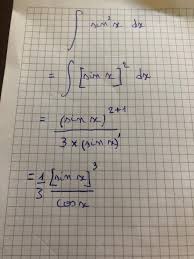 ∫ sin²x dx
= ∫ [sin x]² dx
= (sin x)²⁺¹ / 3 x (sin x)'
= 1/3 [sin x]³ / cos x